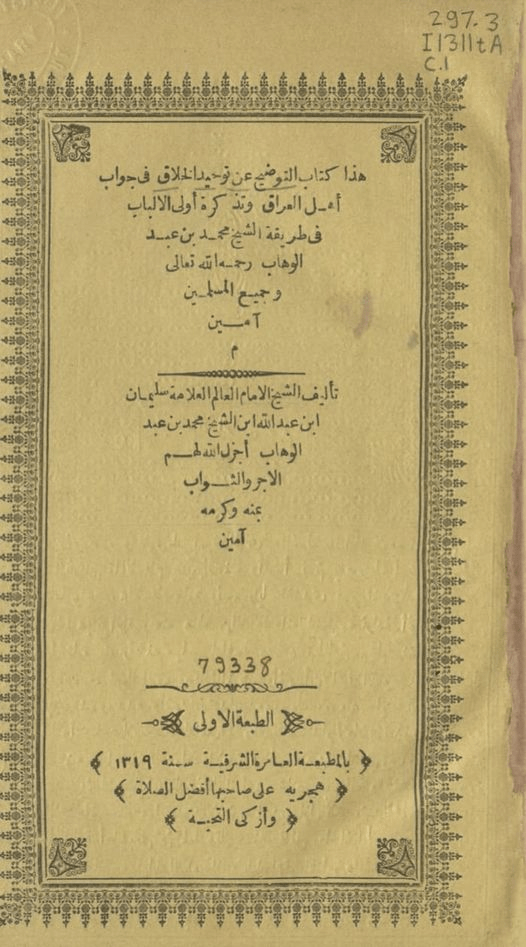 297.3
I1311tA
C.1
هذا كتاب التوضيح عن توحيد الخلاق فى جواب
أهل العراق وتذكرة أولى الالباب
فى طريقة الشيخ محمد بن عبد
الوهاب رحمه الله تعالى
وجميع المسلمين
آمين
م
تأليف الشيخ الامام العالم العلامة سليمان
ابن عبد الله ابن الشيخ محمد بن عبد
الوهاب أجزل الله لهم
الاجر والثواب
بمنه وكرمه
آمين
79338
الطبعة الاولى
﴿ بالمطبعة العامرة الشرفية سنة ١٣١٩ ﴾
﴿ هجريه على صاحبها أفضل الصلاة ﴾
﴿ وأزكى التحية ﴾